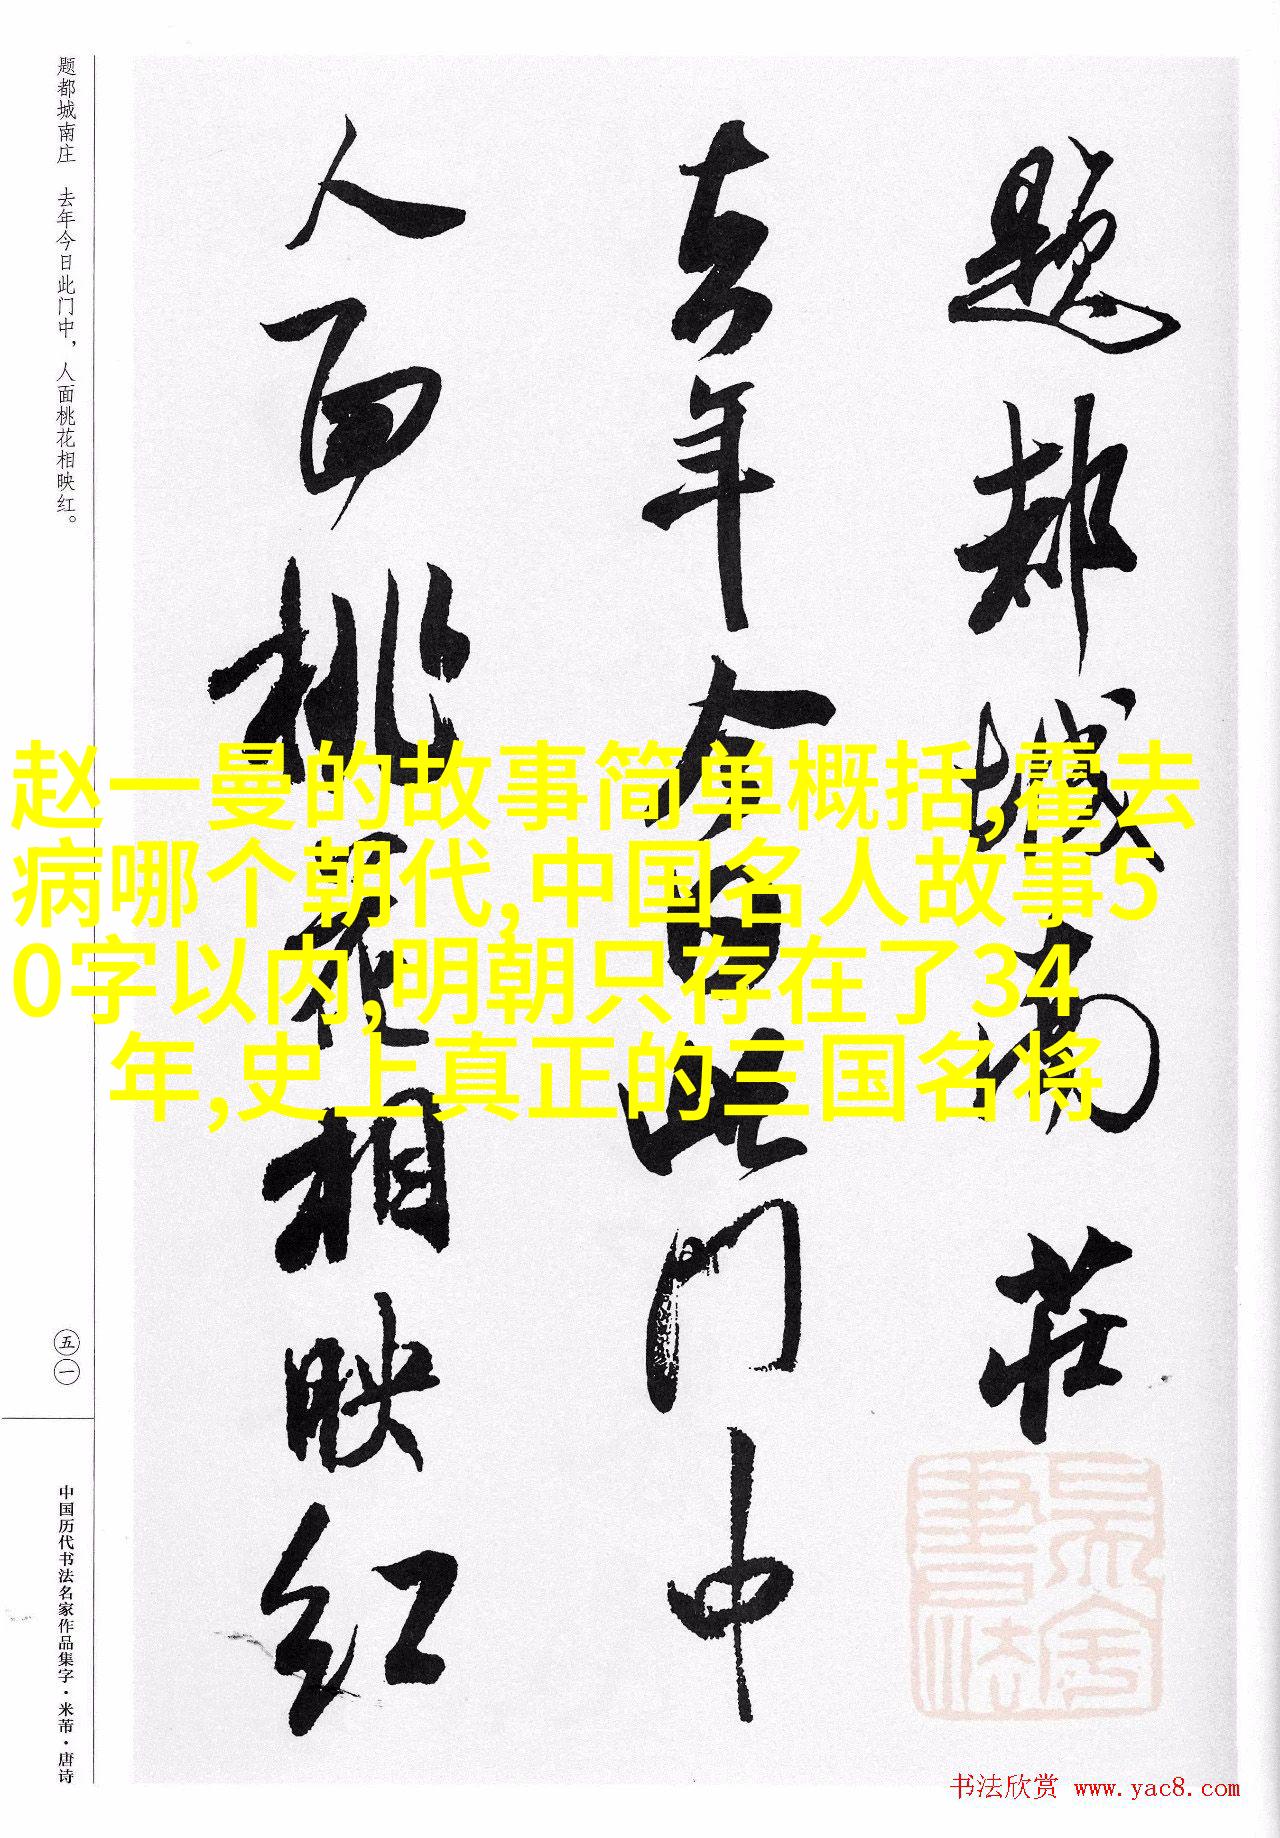 题都城南庄 去年今日此门中，人面桃花相映红。
五一
中国历代书法名家作品集字·米芾·唐诗
题都城南庄
去年今日此门中
人面桃花相映红
赵一曼的故事简单概括,霍去
病哪个朝代,中国名人故事5
0字以内,明朝只存在了34
年,史上真正的三国名将
书法欣赏 www.yac8.com